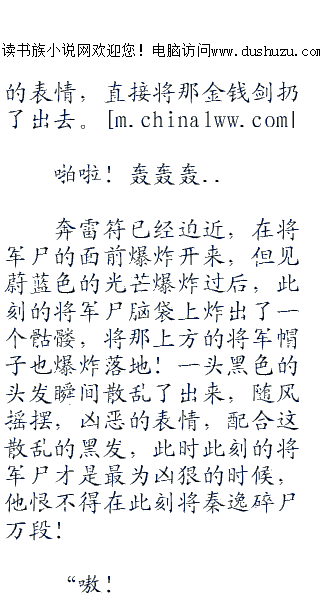 读书族小说网欢迎您！电脑访问www.dushuzu.com
的表情，直接将那金钱剑扔
了出去。[m.china1ww.com|
啪啦！轰轰轰..
奔雷符已经迫近，在将
军尸的面前爆炸开来，但见
蔚蓝色的光芒爆炸过后，此
刻的将军尸脑袋上炸出了一
个骷髅，将那上方的将军帽
子也爆炸落地！一头黑色的
头发瞬间散乱了出来，随风
摇摆，凶恶的表情，配合这
散乱的黑发，此时此刻的将
军尸才是最为凶狠的时候，
他恨不得在此刻将秦逸碎尸
万段！
“嗷！